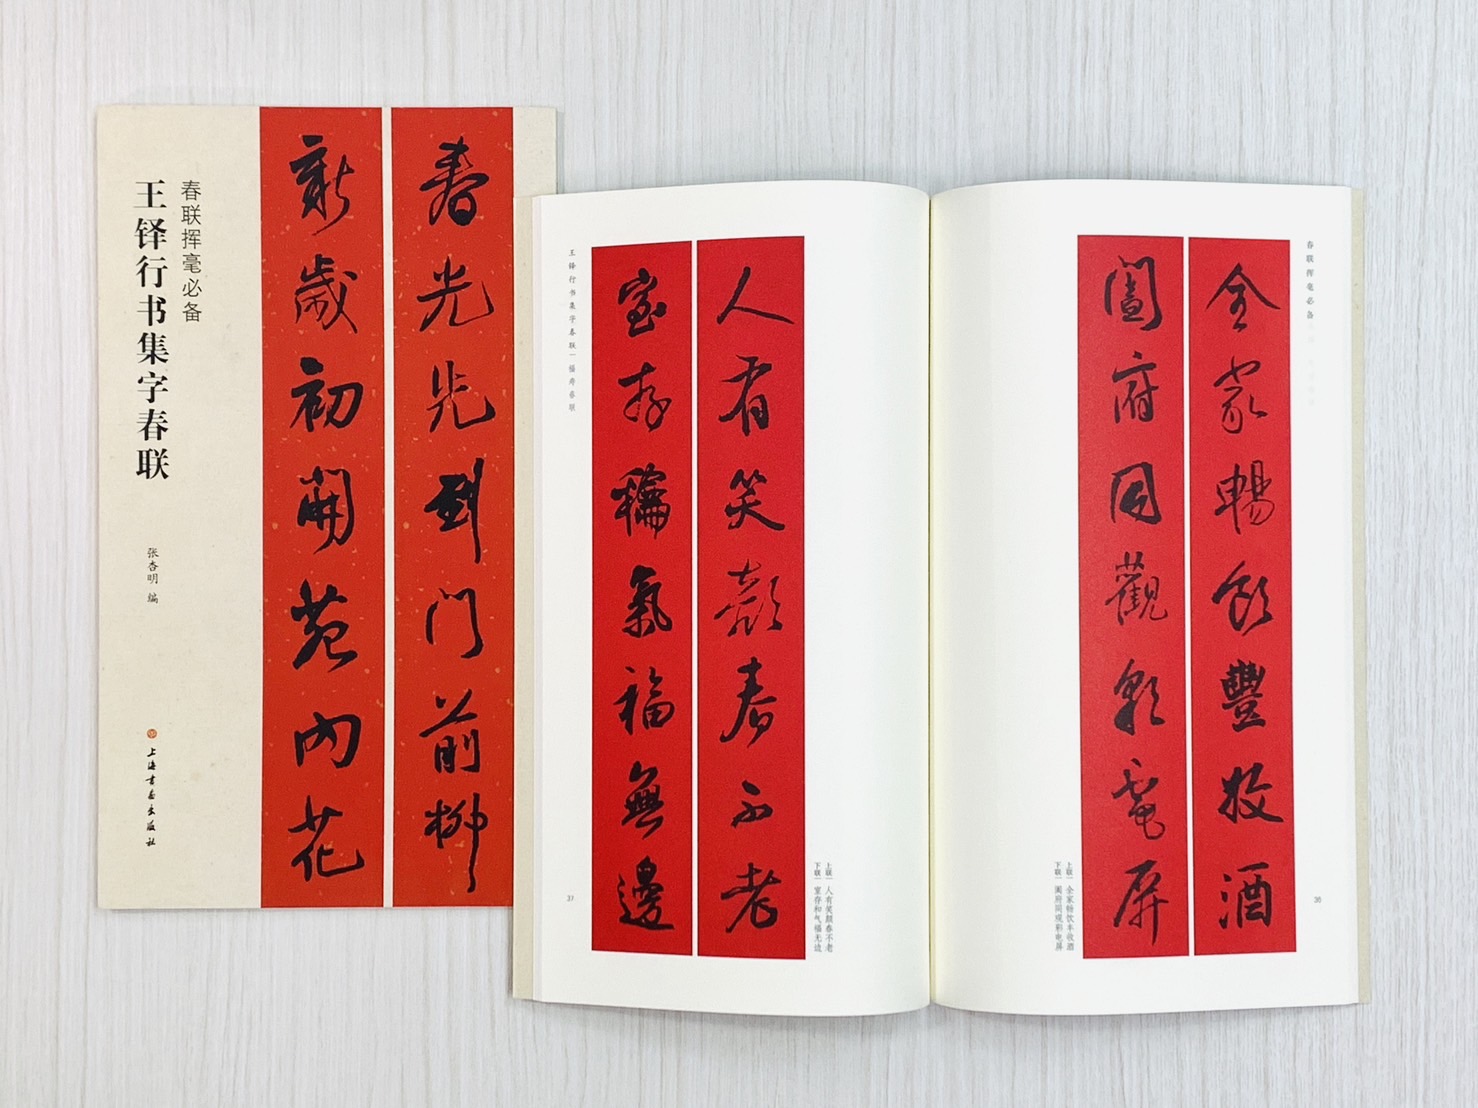 春联挥毫必备
王铎行书集字春联
张杏明 编
上海书画出版社
春光先到门前柳
新歲初開苑内花
春联挥毫必备
全家暢飲豐收酒
闔府同觀彩電屏
上联｜全家畅饮丰收酒
下联｜阖府同观彩电屏
36
人有笑顏春不老
室存龢氣福無邊
上联｜人有笑颜春不老
下联｜室存和气福无边
王铎行书集字春联｜福寿春联
37